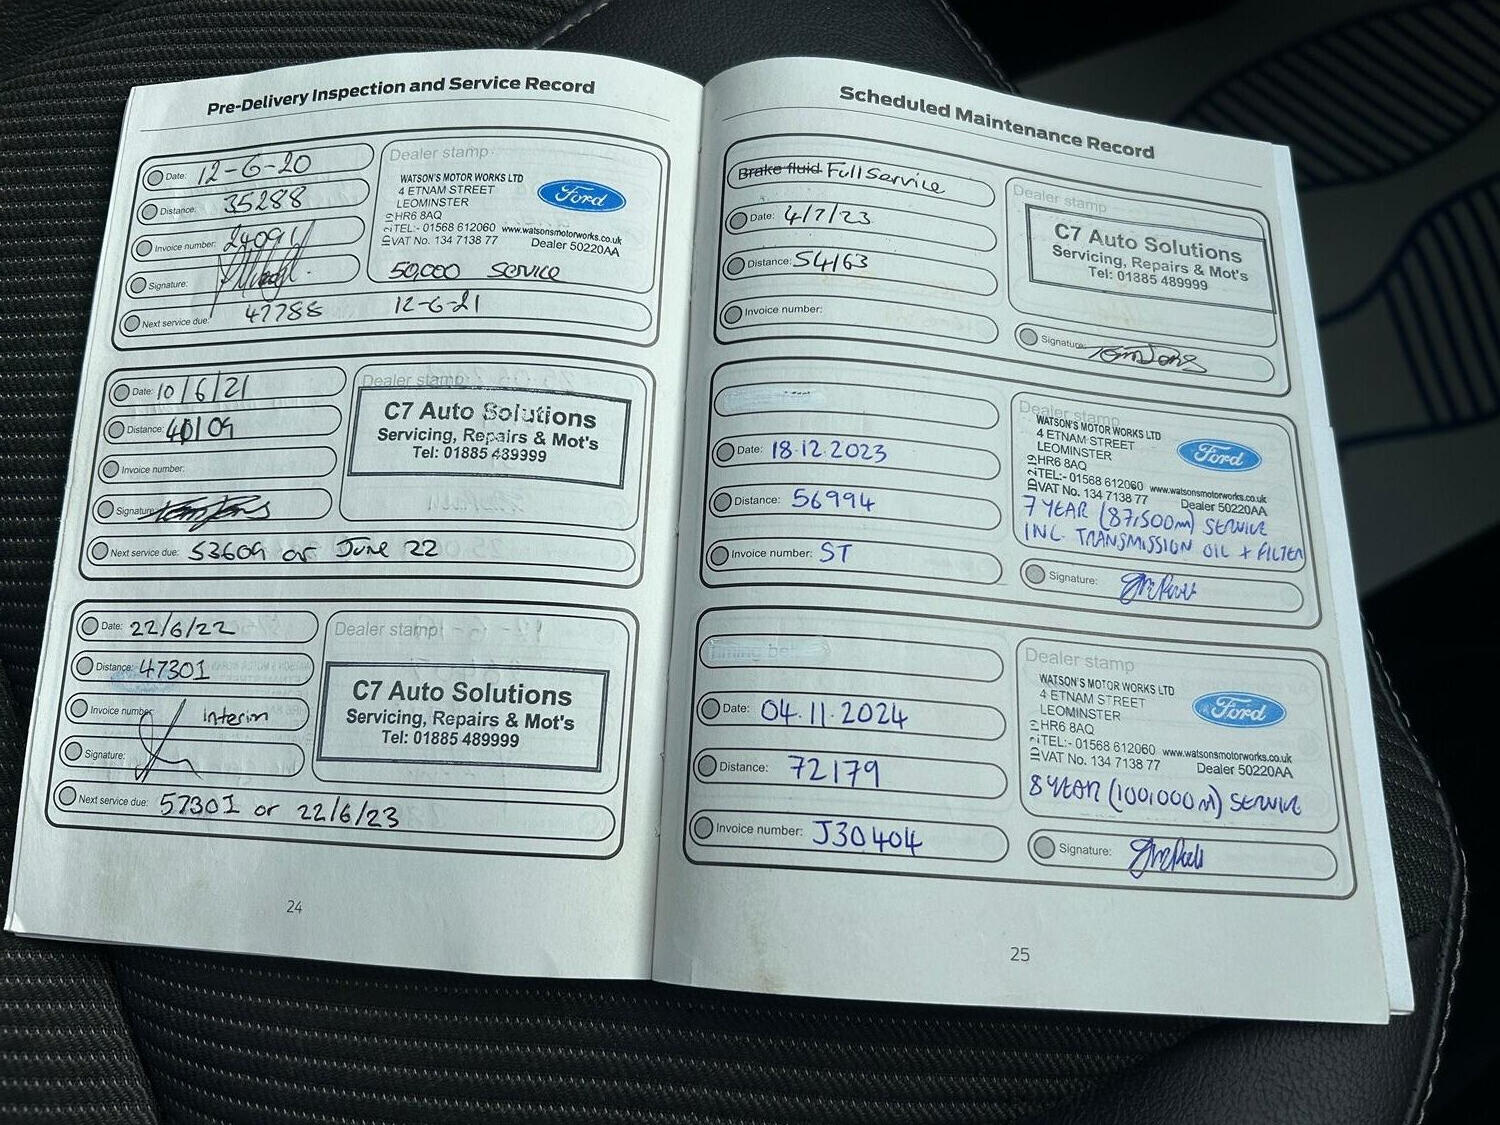 Pre-Delivery Inspection and Service Record
Date: 12-6-20
Distance: 35288
Invoice number: 24091
Signature:
Next service due: 47788 12-6-21
Dealer stamp
WATSON'S MOTOR WORKS LTD
4 ETNAM STREET
LEOMINSTER
HR6 8AQ
TEL:- 01568 612060 www.watsonsmotorworks.co.uk
VAT No. 134 7138 77 Dealer 50220AA
Ford
50,000 SERVICE
Date: 10/6/21
Distance: 40109
Invoice number:
Signature:
Next service due: 53609 or June 22
Dealer stamp
C7 Auto Solutions
Servicing, Repairs & Mot's
Tel: 01885 489999
Date: 22/6/22
Distance: 47301
Invoice number: Interim
Signature:
Next service due: 57301 or 22/6/23
Dealer stamp
C7 Auto Solutions
Servicing, Repairs & Mot's
Tel: 01885 489999
24
Scheduled Maintenance Record
Brake fluid Full Service
Date: 4/7/23
Distance: 54163
Invoice number:
Dealer stamp
C7 Auto Solutions
Servicing, Repairs & Mot's
Tel: 01885 489999
Signature:
Date: 18.12.2023
Distance: 56994
Invoice number: ST
Dealer stamp
WATSON'S MOTOR WORKS LTD
4 ETNAM STREET
LEOMINSTER
HR6 8AQ
TEL:- 01568 612060 www.watsonsmotorworks.co.uk
VAT No. 134 7138 77 Dealer 50220AA
Ford
7 YEAR (87,500m) SERVICE
INC. TRANSMISSION OIL + FILTER
Signature:
Timing belt
Date: 04.11.2024
Distance: 72179
Invoice number: J30404
Dealer stamp
WATSON'S MOTOR WORKS LTD
4 ETNAM STREET
LEOMINSTER
HR6 8AQ
TEL:- 01568 612060 www.watsonsmotorworks.co.uk
VAT No. 134 7138 77 Dealer 50220AA
Ford
8 YEAR (100,000m) SERVICE
Signature:
25